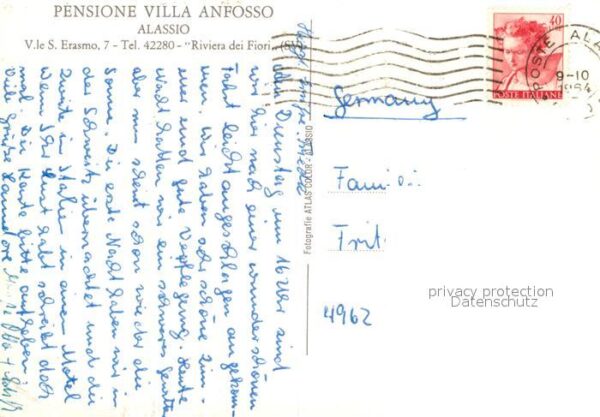 PENSIONE VILLA ANFOSSO
ALASSIO
V.le S. Erasmo, 7 - Tel. 42280 - "Riviera dei Fiori" (SV)
40
POSTE ITALIANE
POSTE ALA
9-10
Germany
Famili
Frit
4962
Fotografie ATLAS COLOR - ALASSIO
den Dienstag um 16 Uhr sind
wir hier nach einer wunderschönen
Fahrt leicht angeschlagen angekom-
men. Wir haben sehr schöne Zim-
mer und gute Verpflegung. Heute
Nacht hatten wir ein schweres Gewitter
aber nun scheint schon wieder die
Sonne. Die erste Nacht haben wir in
der Schweiz übernachtet und die
Zweite in Italien in einem Motel
Wenn Ihr Lust habt schreibt doch
mal. Die Karte bitte aufheben
Viele Grüße Hannelore
privacy protection
Datenschutz